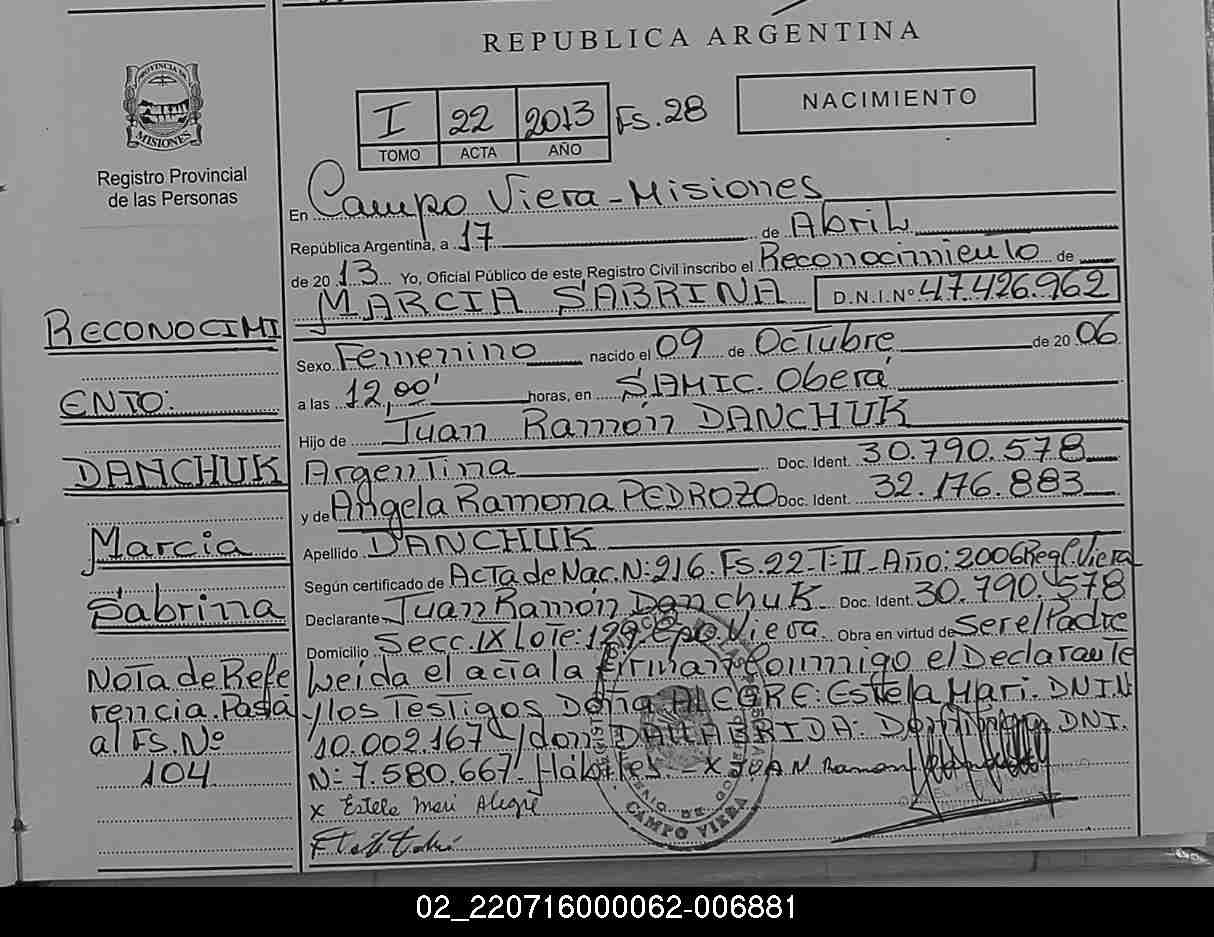 REPUBLICA ARGENTINA
PROVINCIA DE
MISIONES
Registro Provincial
de las Personas
I 22 2013 Fs. 28
TOMO ACTA AÑO
NACIMIENTO
En Campo Viera - Misiones
República Argentina, a 17 de Abril
de 20 13 Yo, Oficial Público de este Registro Civil inscribo el Reconocimiento de
MARCIA SABRINA D.N.I.Nº 47.426.962
Sexo Femenino nacido el 09 de Octubre de 20 06
a las 12,00' horas, en SAMIC. Oberá
Hijo de Juan Ramón DANCHUK
Argentina Doc. Ident. 30.790.578
y de Angela Ramona PEDROZO Doc. Ident. 32.176.883
Apellido DANCHUK
Según certificado de Acta de Nac. N: 216. Fs. 22 - T: II - Año: 2006 Reg C. Viera
Declarante Juan Ramón Danchuk Doc. Ident. 30.790.578
Domicilio Secc. IX Lote: 129 Cpo. Viera. Obra en virtud de Ser el Padre
Leída el acta la firman Conmigo el Declarante
y los Testigos Doña ALEGRE: Estela Mari. DNI N
10.002.167 y don DALLABRIDA: DNI.
N: 7.580.667. Hábiles. - X JUAN Ramon
x Estela Mari Alegre
RECONOCIMI
ENTO:
DANCHUK
Marcia
Sabrina
Nota de Refe
rencia. Pasa
al Fs. Nº
104
CAMPO VIERA
02_220716000062-006881